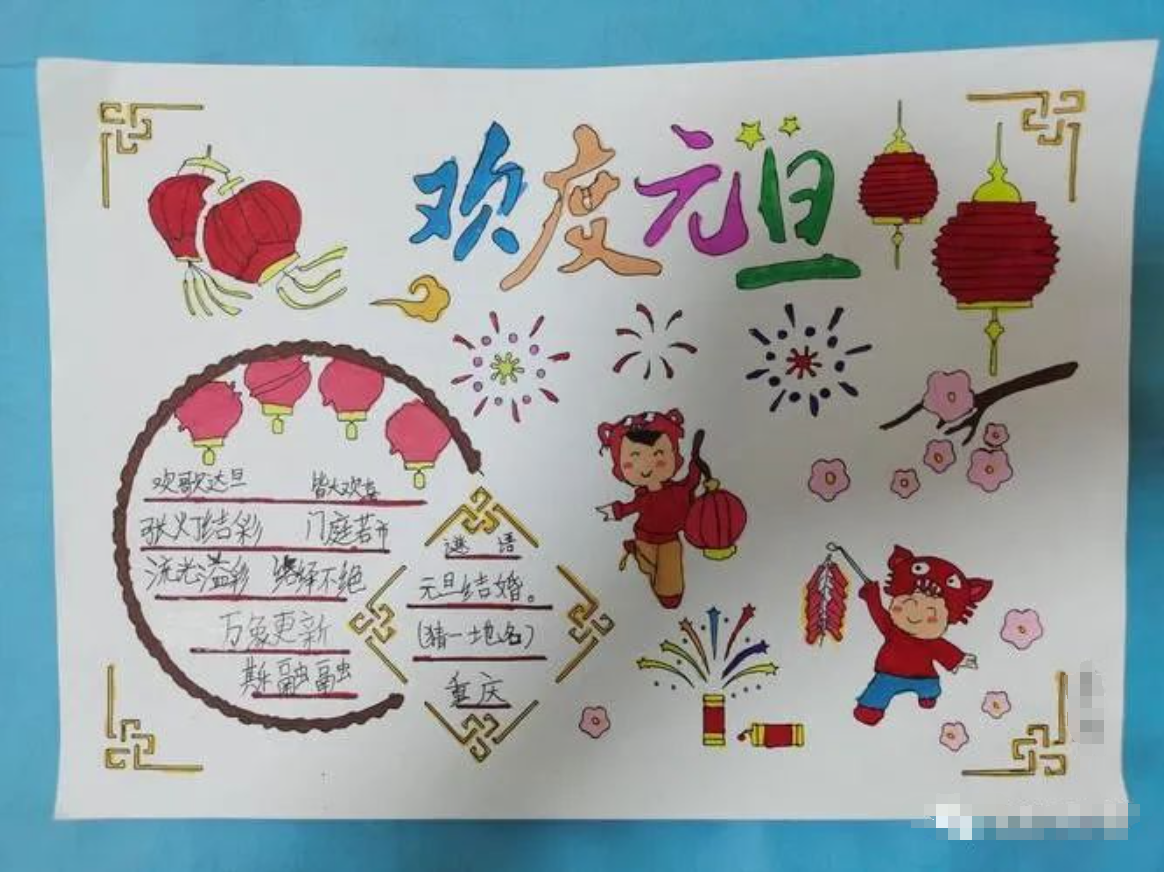 欢度元旦
欢歌达旦 皆大欢喜
张灯结彩 门庭若市
流光溢彩 络绎不绝
万象更新
其乐融融
谜语
元旦结婚。
(猜一地名)
重庆